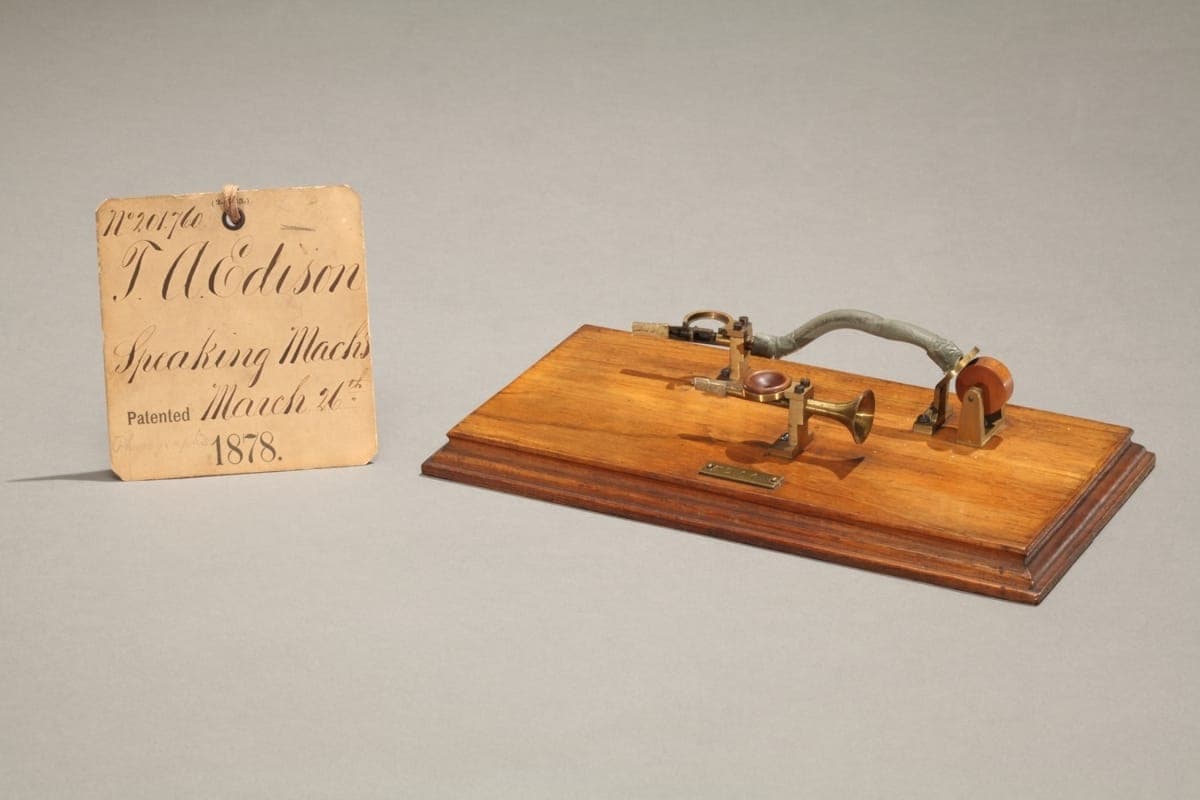 No 201.760
T. A. Edison
Speaking Machs
Patented March 26th
1878.